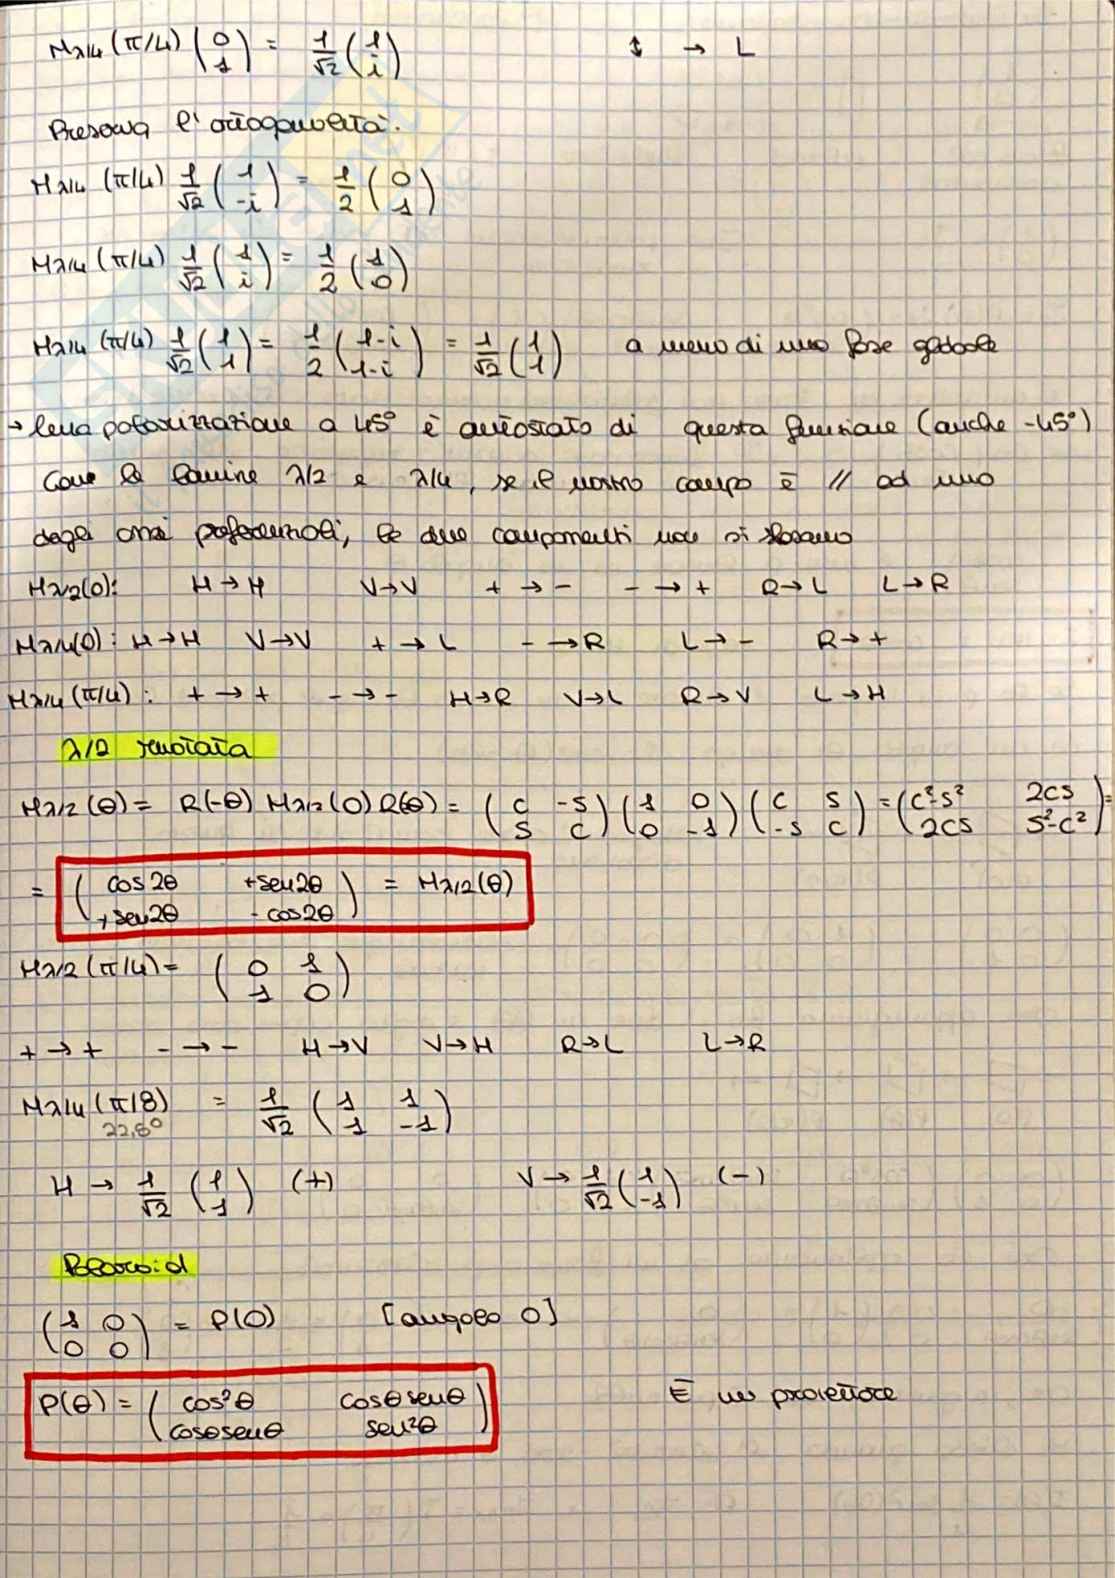 Mλ/4 (π/4) (0 1) = 1/√2 (1 i) ↕ → L
Preserva l'ortogonalità.
Mλ/4 (π/4) 1/√2 (1 -i) = 1/2 (0 1)
Mλ/4 (π/4) 1/√2 (1 i) = 1/2 (1 0)
Mλ/4 (π/4) 1/√2 (1 1) = 1/2 (1-i 1-i) = 1/√2 (1 1) a meno di una fase globale
→ la polarizzazione a 45° è autostato di questa funzione (anche -45°)
Con le lamine λ/2 e λ/4, se il nostro campo è // ad uno
degli assi preferenziali, le due componenti non si sfasano
Mλ/2(0): H→H V→V + → - - → + R→L L→R
Mλ/4(0): H→H V→V + → L - → R L → - R → +
Mλ/4 (π/4): + → + - → - H→R V→L R→V L→H
λ/2 ruotata
Mλ/2 (θ) = R(-θ) Mλ/2 (0) R(θ) = (c -s s c) (1 0 0 -1) (c s -s c) = (c²-s² 2cs 2cs s²-c²) =
= (cos2θ +sen2θ +sen2θ -cos2θ) = Mλ/2(θ)
Mλ/2 (π/4) = (0 1 1 0)
+ → + - → - H→V V→H R→L L→R
Mλ/4 (π/8) = 1/√2 (1 1 1 -1)
22,5°
H → 1/√2 (1 1) (+) V → 1/√2 (1 -1) (-)
Polaroid
(1 0 0 0) = P(0) [angolo 0]
P(θ) = (cos²θ cosθsenθ cosθsenθ sen²θ) È un proiettore